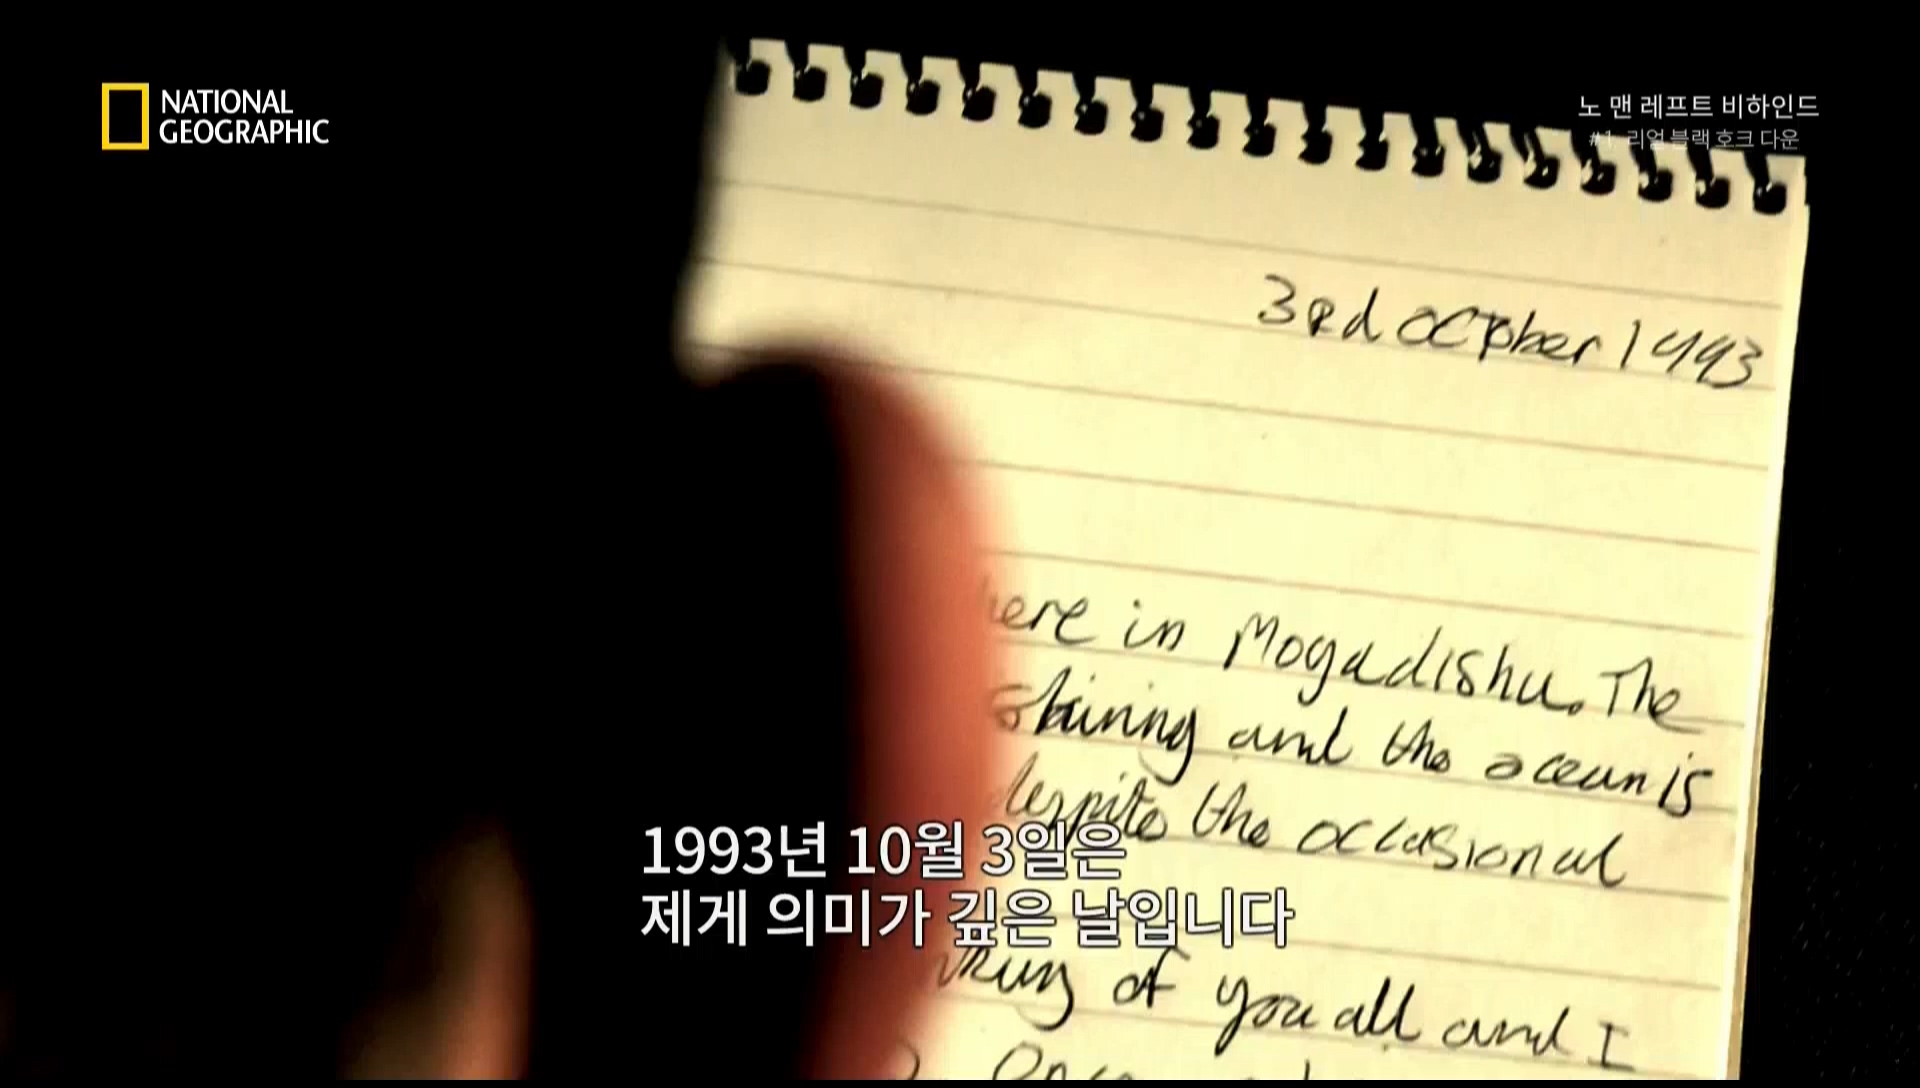 NATIONAL
GEOGRAPHIC
노 맨 레프트 비하인드
#1. 리얼 블랙 호크 다운
3Rd OCTober 1993
ere in Mogadishu. The
shining and the ocean is
despite the occasional
1993년 10월 3일은
제게 의미가 깊은 날입니다
of you all and I